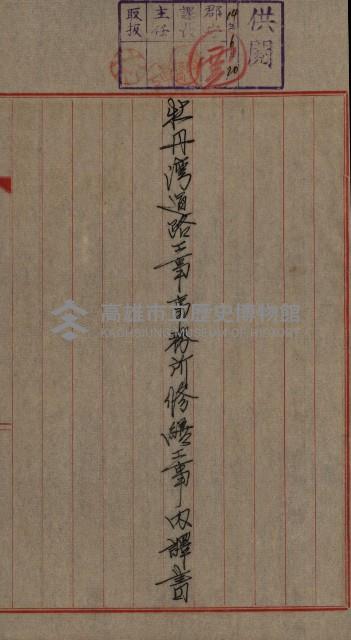 供閱
郡守
課長
主任
取扱
14 6 20
牡丹湾道路工事事務所修繕工事内譯書
高雄市立歷史博物館
KAOHSIUNG MUSEUM OF HISTORY